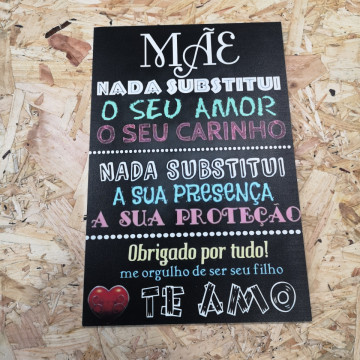 MÃE
NADA SUBSTITUI
O SEU AMOR
O SEU CARINHO
NADA SUBSTITUI
A SUA PRESENÇA
A SUA PROTEÇÃO
Obrigado por tudo!
me orgulho de ser seu filho
TE AMO